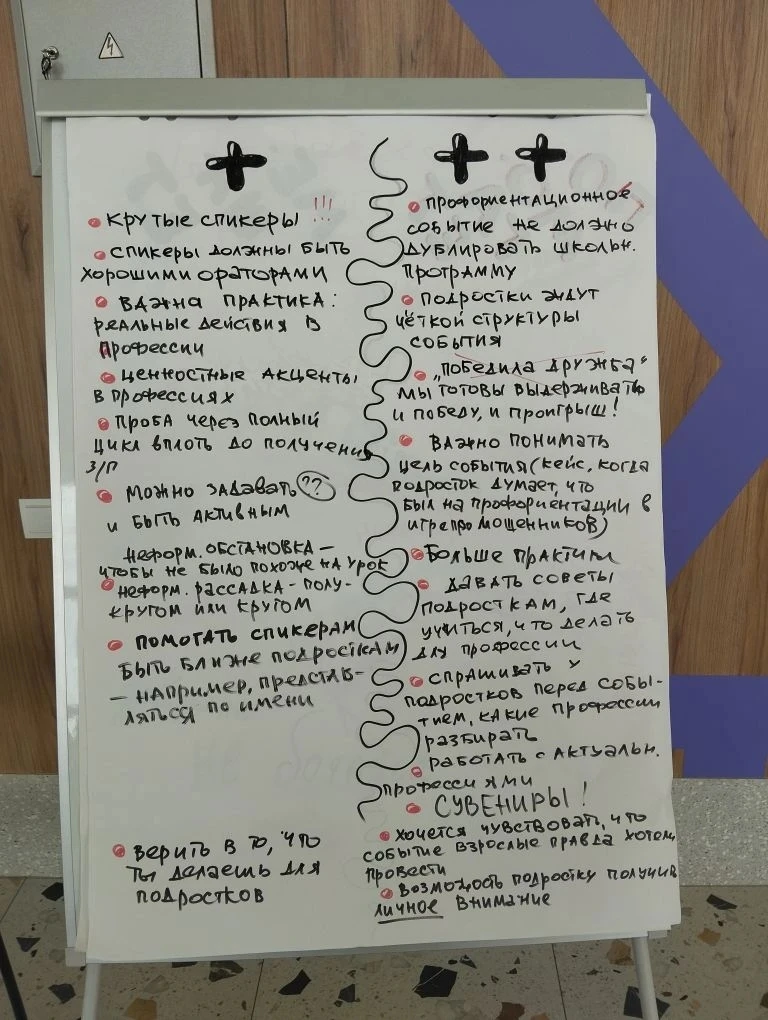 +
• КРУТЫЕ СПИКЕРЫ !!!
• СПИКЕРЫ ДОЛЖНЫ БЫТЬ
ХОРОШИМИ ОРАТОРАМИ
• ВАЖНА ПРАКТИКА:
РЕАЛЬНЫЕ ДЕЙСТВИЯ В
ПРОФЕССИИ
• ЦЕННОСТНЫЕ АКЦЕНТЫ
В ПРОФЕССИЯХ
• ПРОБА ЧЕРЕЗ ПОЛНЫЙ
ЦИКЛ ВПЛОТЬ ДО ПОЛУЧЕНИЯ
З/П
• МОЖНО ЗАДАВАТЬ ??
И БЫТЬ АКТИВНЫМ
НЕФОРМ. ОБСТАНОВКА –
ЧТОБЫ НЕ БЫЛО ПОХОЖЕ НА УРОК
• НЕФОРМ. РАССАДКА - ПОЛУ-
КРУГОМ ИЛИ КРУГОМ
• ПОМОГАТЬ СПИКЕРАМ
БЫТЬ БЛИЖЕ ПОДРОСТКАМ
– НАПРИМЕР, ПРЕДСТАВ-
ЛЯТЬСЯ ПО ИМЕНИ
• ВЕРИТЬ В ТО, ЧТО
ТЫ ДЕЛАЕШЬ ДЛЯ
ПОДРОСТКОВ
+ +
• ПРОФОРИЕНТАЦИОННОЕ
СОБЫТИЕ НЕ ДОЛЖНО
ДУБЛИРОВАТЬ ШКОЛЬН.
ПРОГРАММУ
• ПОДРОСТКИ ЖДУТ
ЧЁТКОЙ СТРУКТУРЫ
СОБЫТИЯ
• „ПОБЕДИЛА ДРУЖБА"
МЫ ГОТОВЫ ВЫДЕРЖИВАТЬ
И ПОБЕДУ, И ПРОИГРЫШ!
• ВАЖНО ПОНИМАТЬ
ЦЕЛЬ СОБЫТИЯ (КЕЙС, КОГДА
ПОДРОСТОК ДУМАЕТ, ЧТО
БЫЛ НА ПРОФОРИЕНТАЦИИ В
ИГРЕ ПРО МОШЕННИКОВ)
• БОЛЬШЕ ПРАКТИКИ
• ДАВАТЬ СОВЕТЫ
ПОДРОСТКАМ, ГДЕ
УЧИТЬСЯ, ЧТО ДЕЛАТЬ
ДЛЯ ПРОФЕССИИ
• СПРАШИВАТЬ У
ПОДРОСТКОВ ПЕРЕД СОБЫ-
ТИЕМ, КАКИЕ ПРОФЕССИИ
РАЗБИРАТЬ
• РАБОТАТЬ С АКТУАЛЬН.
ПРОФЕССИЯМИ
• СУВЕНИРЫ!
• ХОЧЕТСЯ ЧУВСТВОВАТЬ, ЧТО
СОБЫТИЕ ВЗРОСЛЫЕ ПРАВДА ХОТЕЛИ
ПРОВЕСТИ
• ВОЗМОЖОСТЬ ПОДРОСТКУ ПОЛУЧИТЬ
ЛИЧНОЕ ВНИМАНИЕ